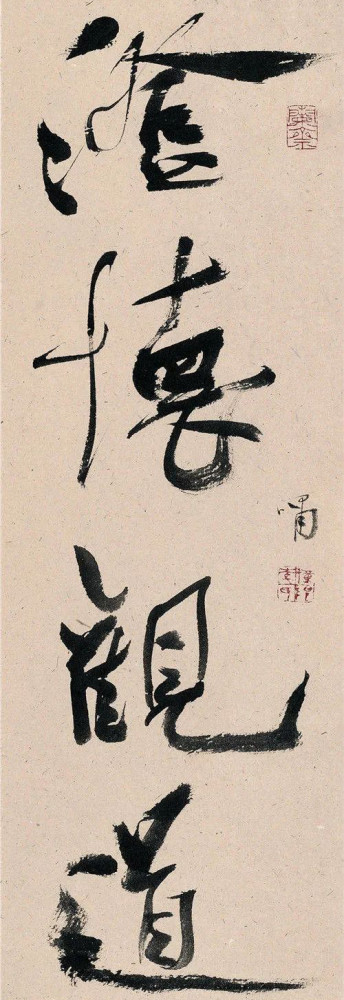 澄懷觀道
嘯